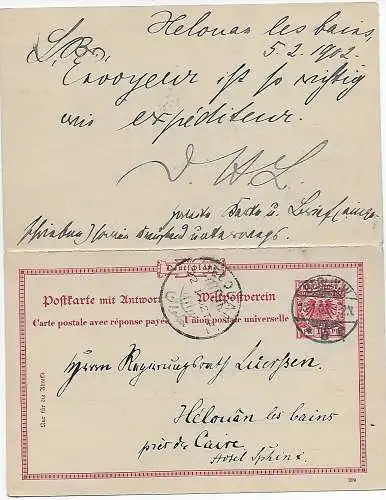 Helouan les bains,
5. 2. 1902.
L. B.,
Envoyeur ist so richtig
wie expéditeur.
D. H. L.
zweite Karte u. Brief
unterwegs.
Deutschland
Postkarte mit Antwort Weltpostverein
Carte postale avec réponse payée Union postale universelle
Nur für die Adresse
Herrn Regierungsrath Luerssen
Hélouân les bains
près de Caire
Hotel Sphinx